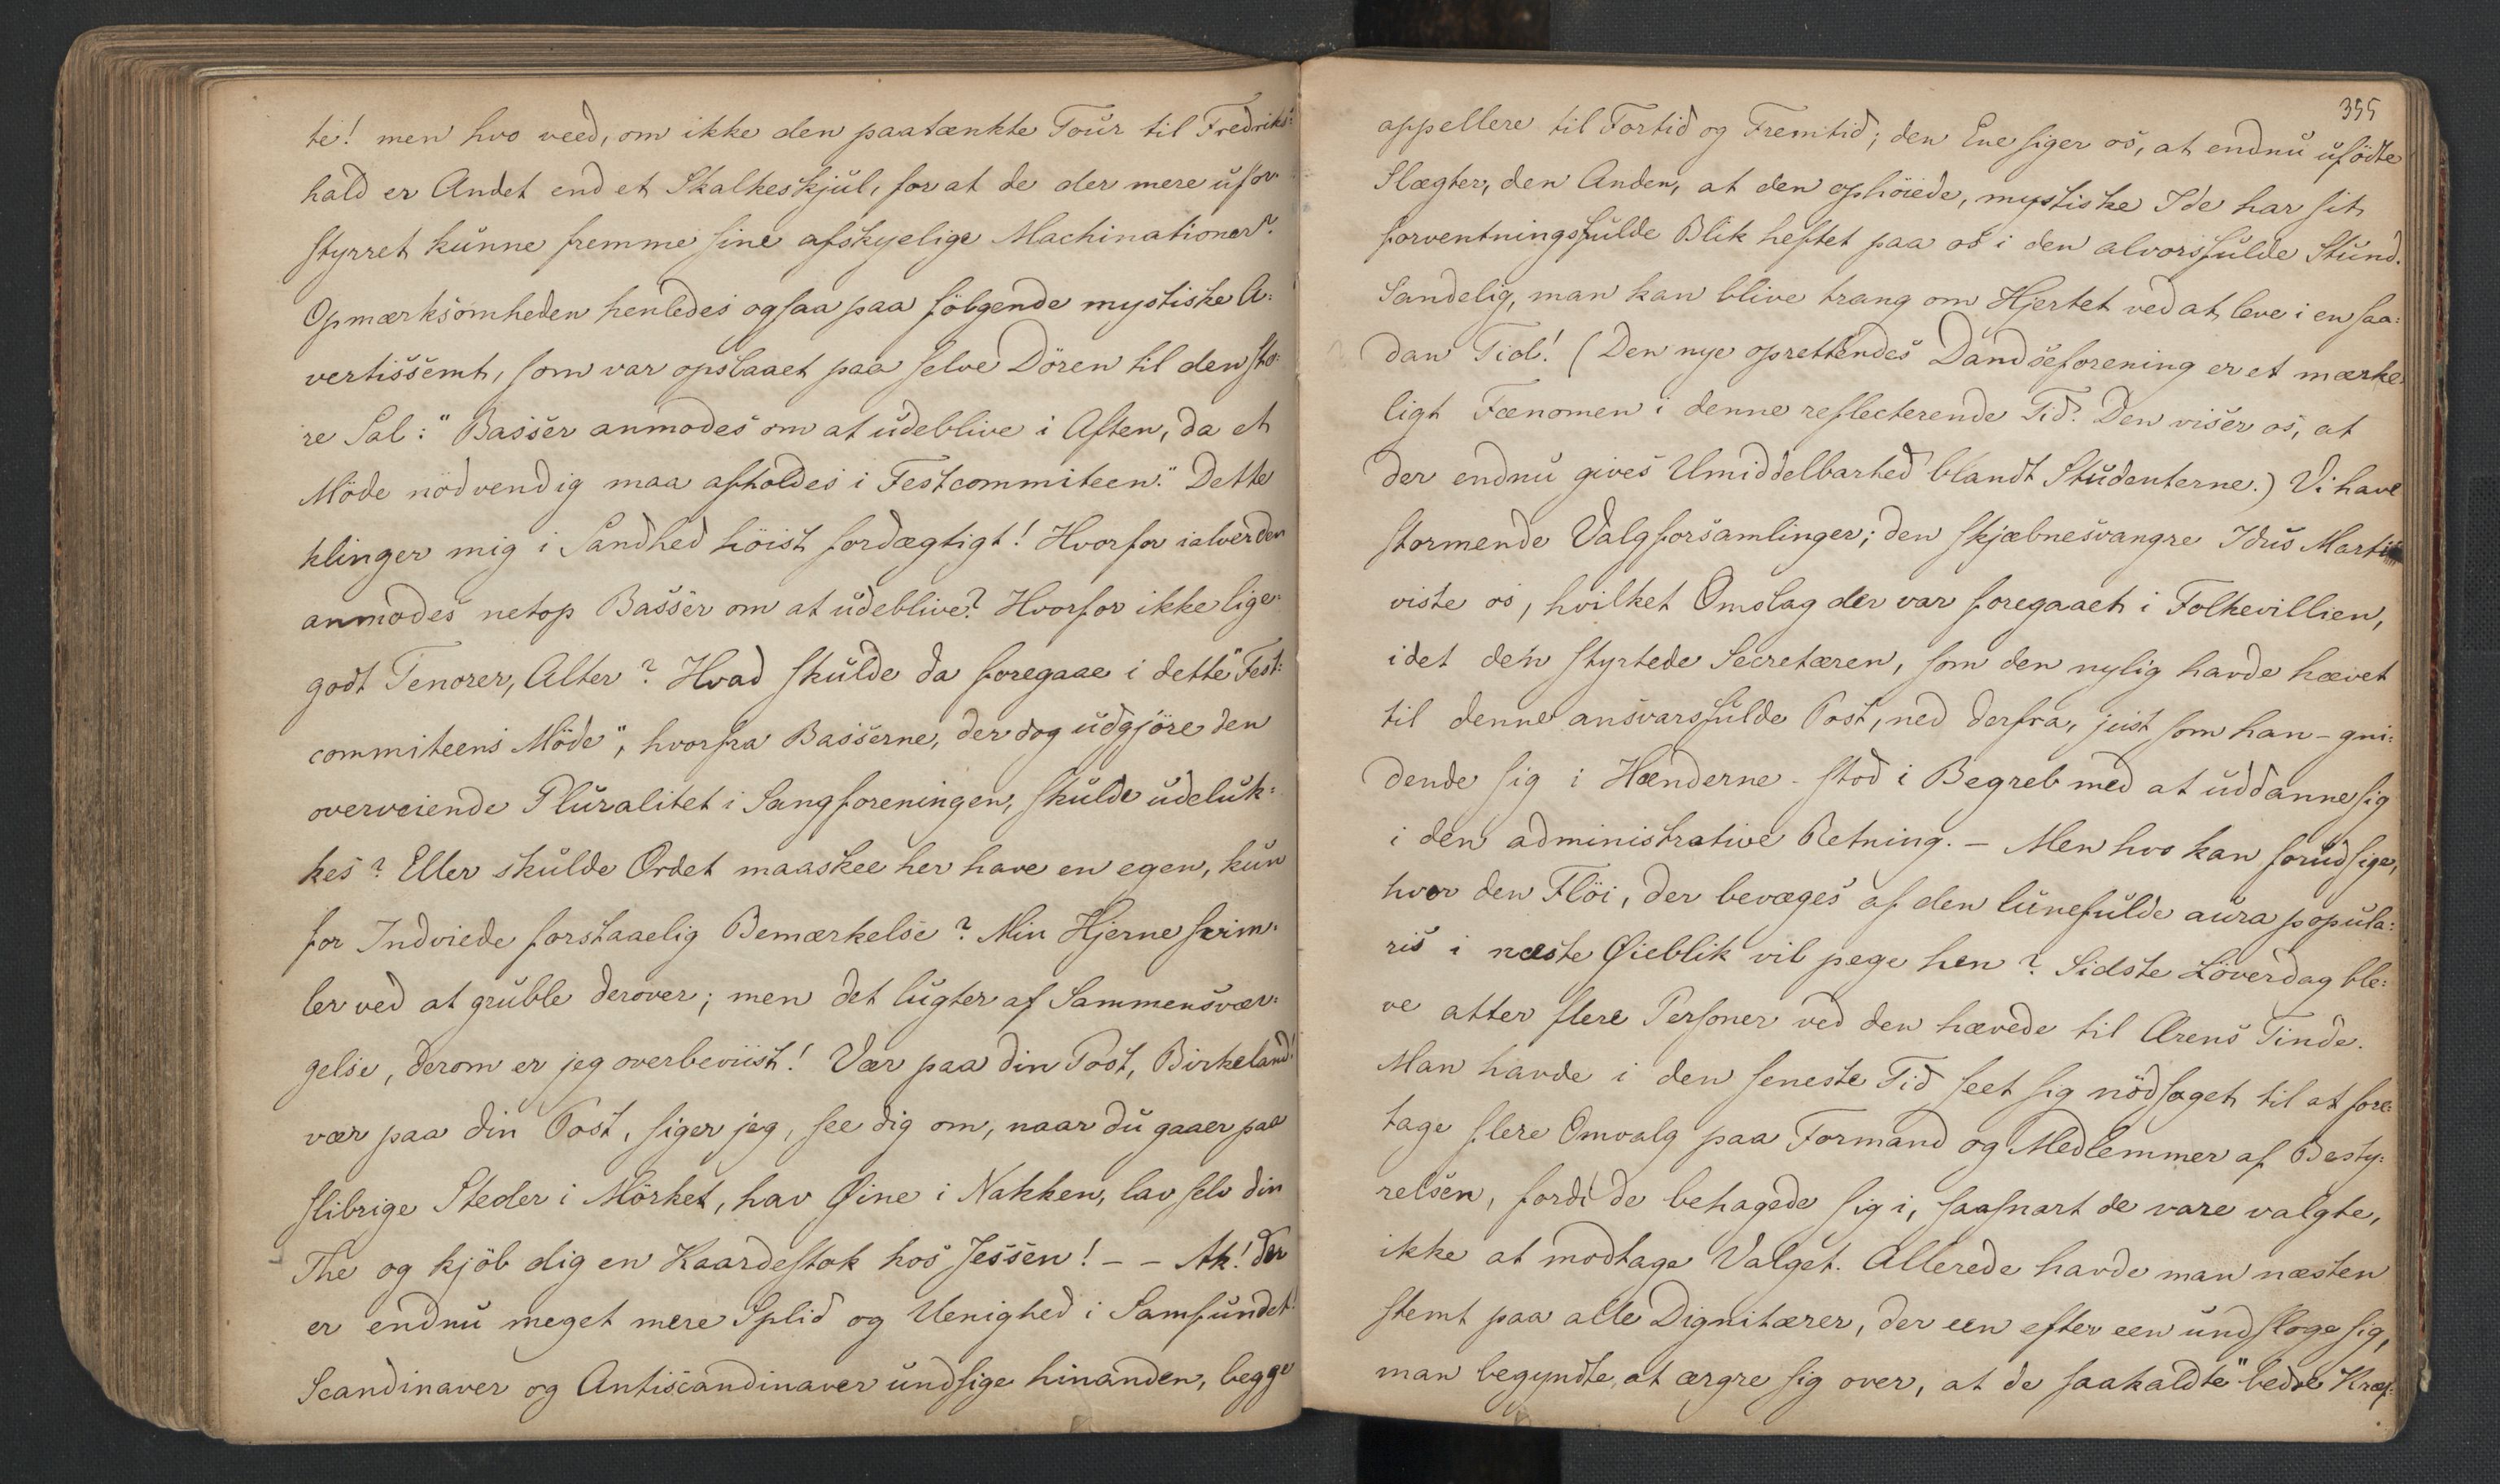 te! men hvo veed, om ikke den paatænkte Tour til Fredriks:
hald er Andet end et Skalkeskjul, for at de der mere ufor:
styrret kunne fremme sine afskyelige Machinationer?
Opmærksomheden henledes ogsaa paa følgende mystiske A:
vertissemt, som var opslaaet paa selve Dören til den sto:
re Sal: "Basser anmodes om at udeblive i Aften, da et
Möde nödvendig maa afholdes i Festcommiteen." Dette
klinger mig i Sandhed höist fordægtigt! Hvorfor ialverden
anmodes netop Basser om at udeblive? Hvorfor ikke lige:
godt Tenorer, Alter? Hvad skulde da foregaae i dette "Fest:
commiteens Möde", hvorfra Basserne, der dog udgjöre den
overveiende Pluralitet i Sangforeningen, skulde udeluk:
kes? Eller skulde Ordet maaskee her have en egen, kun
for Indviede forstaaelig Bemærkelse? Min Hjerne svim:
ler ved at gruble derover; men det lugter af Sammensvær:
gelse, derom er jeg overbeviist! Vær paa din Post, Birkeland!
vær paa din Post, siger jeg, see dig om, naar du gaaer paa
slibrige Steder i Mörket, hav Øine i Nakken, lav selv din
The og kjöb dig en Kaardestok hos Jessen! - - Ak! der
er endnu meget mere Splid og Uenighed i Samfundet!
Scandinaver og Antiscandinaver undsige hinanden, begge
355
appellere til Fortid og Fremtid; den Ene siger os, at endnu ufödte
Slægter, den Anden, at den ophöiede, mystiske Ide har sit
forventningsfulde Blik heftet paa os i den alvorsfulde Stund.
Sandelig, man kan blive trang om Hjertet ved at leve i en saa:
dan Tid! (Den nye oprettendes Dandseforening er et mærke:
ligt Fænomen i denne reflecterende Tid. Den viser os, at
der endnu gives Umiddelbarhed blandt Studenterne.) Vi have
stormende Valgforsamlinger; den skjæbnesvangre Idus Martii
viste os, hvilket Omslag der var foregaaet i Folkevillien,
idet den styrtede Secretæren, som den nylig havde hævet
til denne ansvarsfulde Post, ned derfra, just som han - gni:
dende sig i Hænderne - stod i Begreb med at uddanne sig
i den administrative Retning. - Men hvo kan forudsige,
hvor den Flöi, der bevæges af den lunefulde aura popula:
ris i næste Øieblik vil pege hen? Sidste Löverdag ble:
ve atter flere Personer ved den hævede til Ærens Tinde.
Man havde i den seneste Tid seet sig nödsaget til at fore:
tage flere Omvalg paa Formand og Medlemmer af Besty:
relsen, fordi de behagede sig i, saasnart de vare valgte,
ikke at modtage Valget. Allerede havde man næsten
stemt paa alle Dignitærer, der een efter een undsloge sig,
man begyndte at ærgre sig over, at de saakaldte "bedre Kræf: